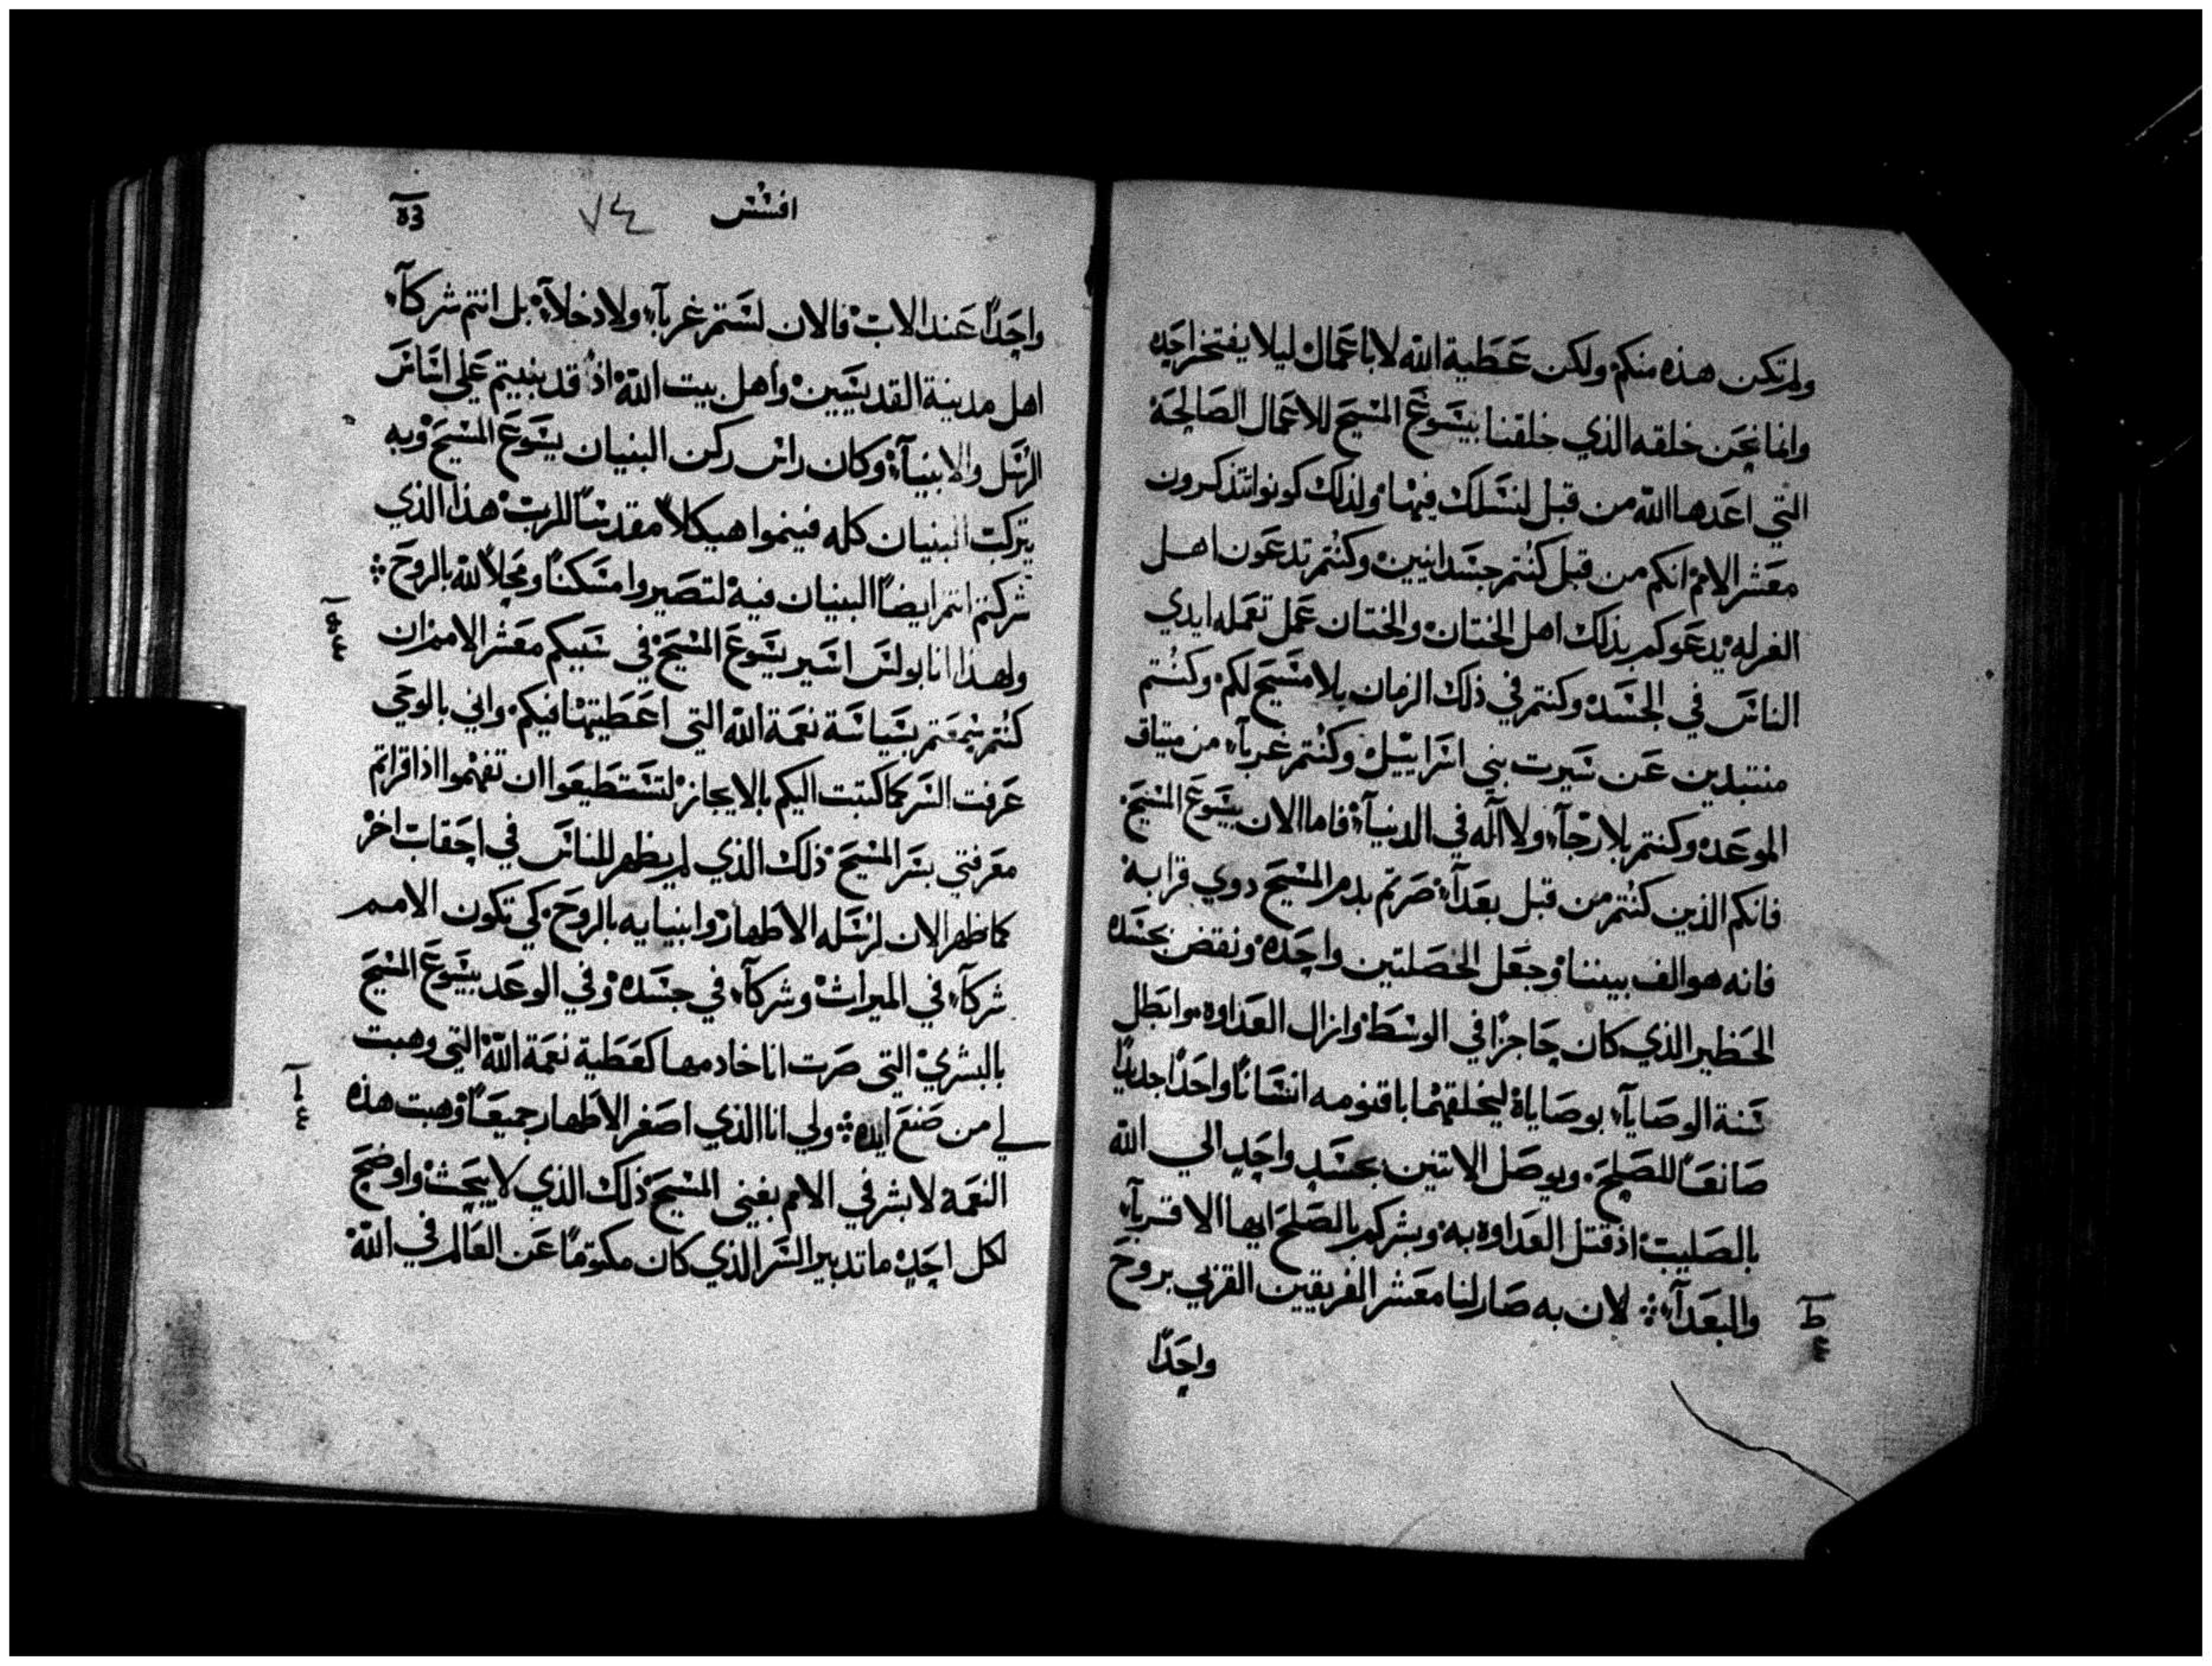 ولم تكن هذه منكم ولكن عَطية الله لا باعمال ليلا يفتخر احد
وانما نحن خلقه الذي خلقنا بيسوع المسيح للاعمال الصالحة
التي اعدها الله من قبل لنسلك فيها ولذلك كونوا تتذكرون
معشر الامم انكم من قبل كنتم جسدانيين وكنتم تدعون اهل
الغرله يدعوكم بذلك اهل الختان والختان عمل تعمله ايدي
الناس في الجسد وكنتم في ذلك الزمان بلا مسيح لكم وكنتم
منتبدين عن سيرت بني اسراييل وكنتم غرباء من ميتاق
الموعد وكنتم بلا رجآء ولا اله في الدنيآ فاما الان بيسوع المسيح
فانكم الذين كنتم من قبل بعدآء صرتم بدم المسيح دوي قرابه
فانه هو الف بيننا وجعل الخصلتين واحده ونقض بجسده
الحظير الذي كان حاجزا في الوسط وازال العداوه وابطل
سنة الوصايآء بوصاياه ليخلقهما باقنومه انسانا واحدا جديدا
صانعا للصلح ويوصل الاتنين بجسد واحد الي الله
بالصليب اذ قتل العداوه به وبشركم بالصلح ايها الاقربآء
والبعدآء لان به صار لنا معشر الفريقين القربي بروح
ط
ع
واحدًا
افسس
٧٤
واحدًا عند الاب فالان لستم غربآء ولا دخلآء بل انتم شركآء
اهل مدينة القديسيين واهل بيت الله اذ قد بنيتم علي اساس
الرسل والانبيآء وكان راس ركن البنيان يسوع المسيح وبه
يتركب البنيان كله فينموا هيكلاً مقدسًا للرب هذا الذي
شركتم انتم ايضًا البنيان فيه لتصيروا مسكنًا ومحلاً لله بالروح
ولهذا انا بولس اسير يسوع المسيح في سببكم معشر الامم ان
كنتم سمعتم بسياسة نعمة الله التي اعطيتها فيكم واني بالوحي
عرفت السر كما كتبت اليكم بالايجاز لتستطيعوا ان تفهموا اذا قراتم
معرفتي بسر المسيح ذلك الذي لم يظهر للناس في احقاب اخر
كما ظهر الان لرسله الاطهار وانبيايه بالروح كي تكون الامم
شركآء في الميراث وشركآء في جسده وفي الوعد بيسوع المسيح
بالبشري التي صرت انا خادمها كعطية نعمة الله التي وهبت
لي من صنع ايده ولي انا الذي اصغر الاطهار جميعًا وهبت هذه
النعمة لابشر في الامم بغني المسيح ذلك الذي لا يبحث واوضح
لكل احد ما تدبير السر الذي كان مكتومًا عن العالم في الله